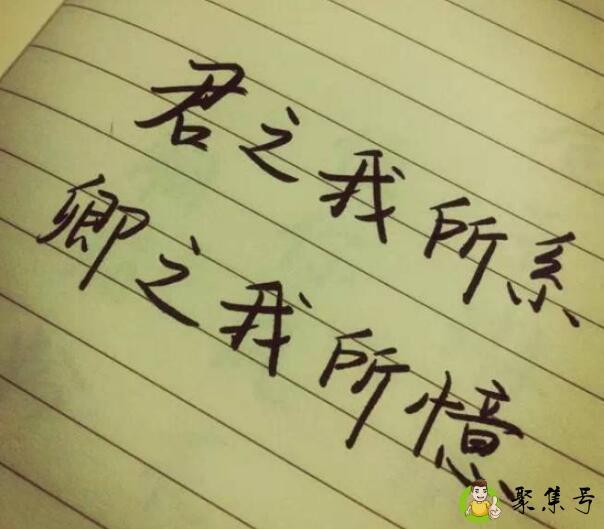 君之我所系
卿之我所憶
聚集号